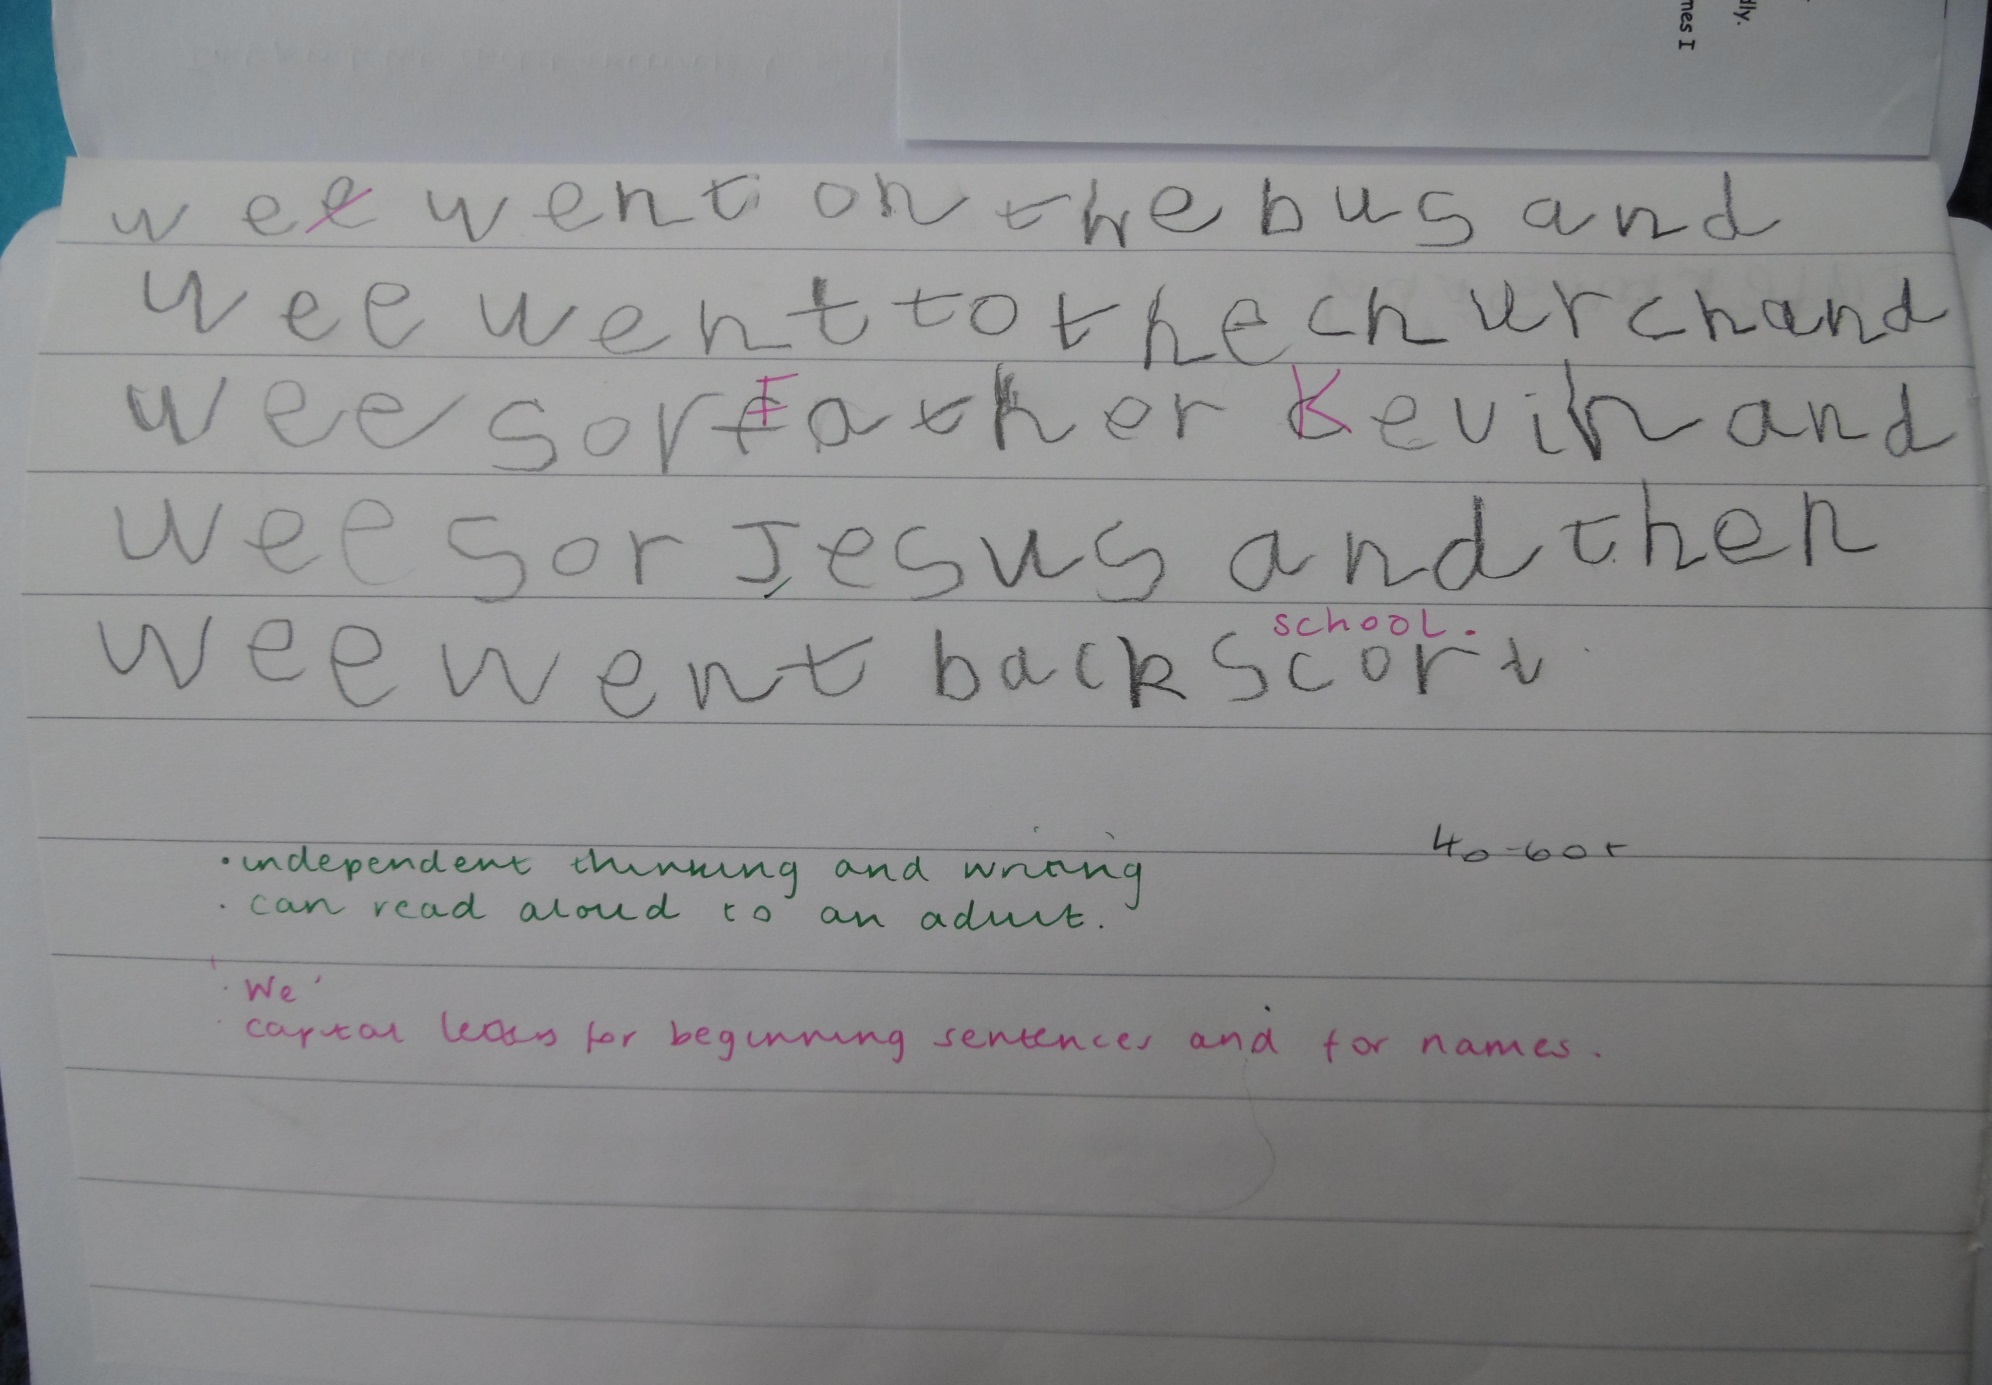 dly.
mes I
wee went on the bus and
wee went to the church and
wee sor Father Kevin and
wee sor Jesus and then
school.
wee went back scort
40-60+
• independent thinking and writing
• can read aloud to an adult.
• We
• capital letters for beginning sentences and for names.